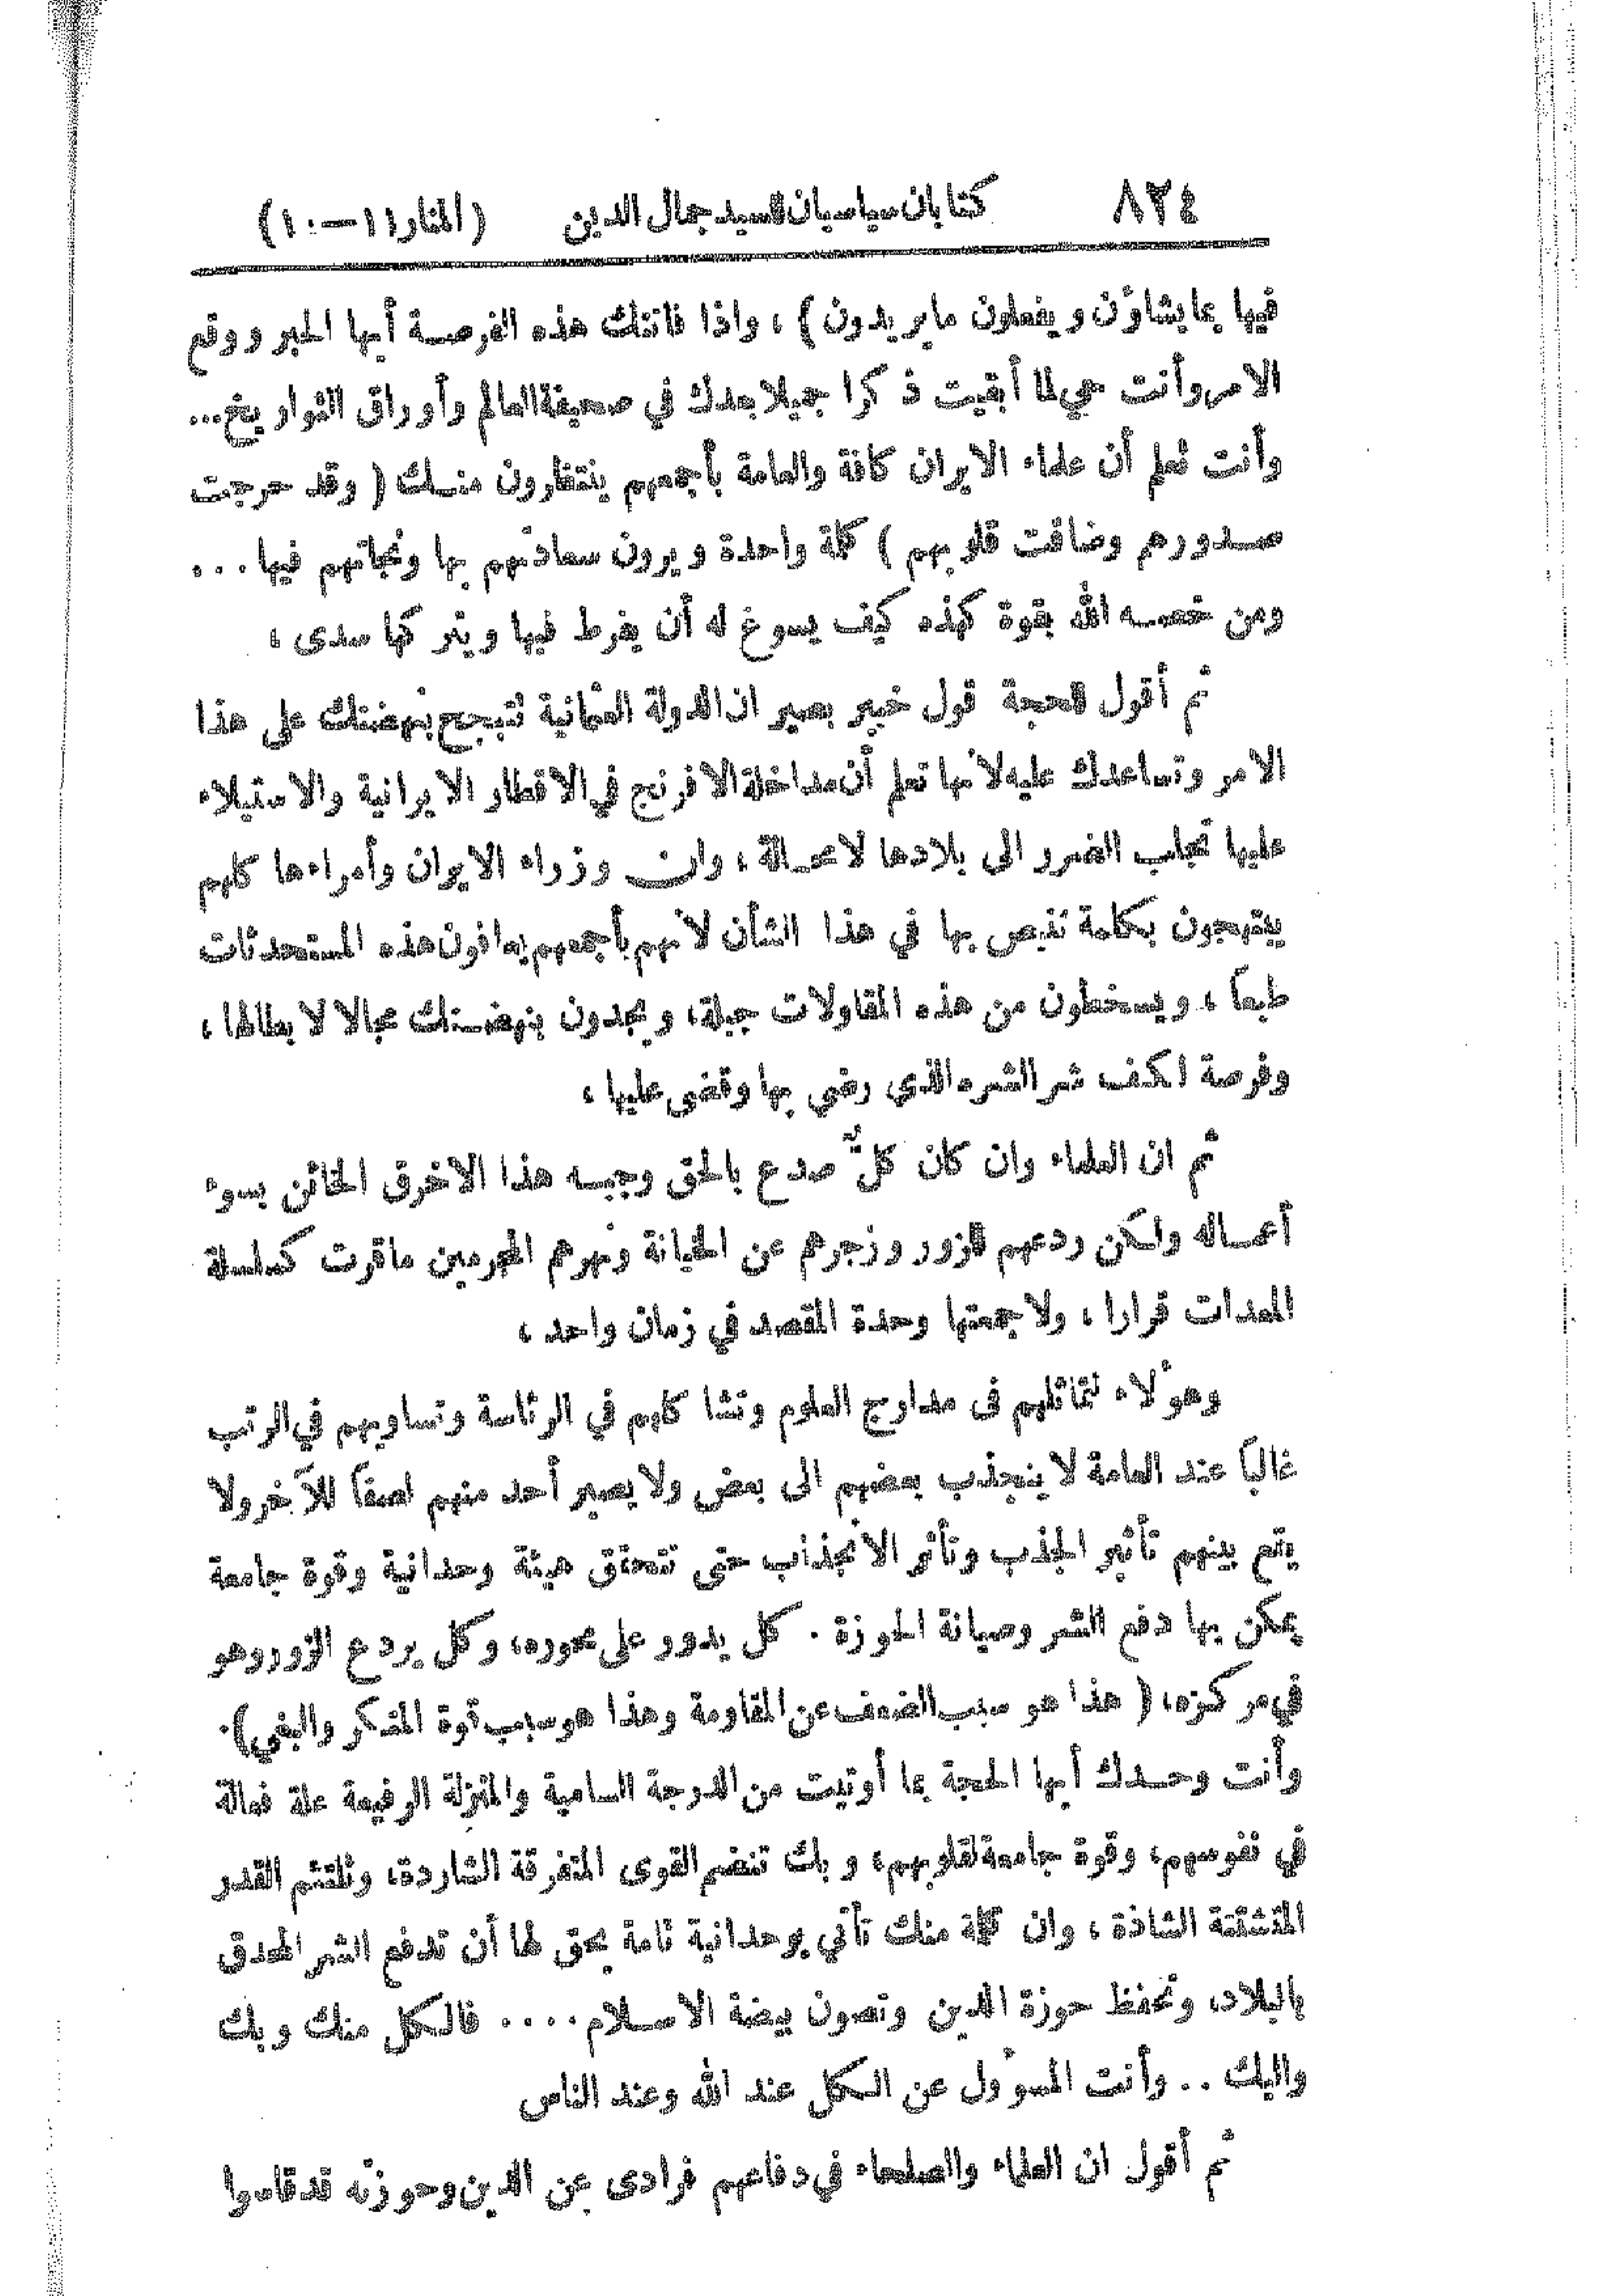 ٨٢٤ كتابان سياسيان للسيد جمال الدين (المنار ١١-١٠)
فيها بما يشاؤن ويفعلون ما يريدون) ، واذا فاتتك هذه الفرصة أيها الحبر ووقع
الامر وأنت حي لما أبقيت ذكرا جميلا بعدك في صحيفة العالم وأوراق التواريخ...
وأنت تعلم أن علماء الايران كافة والعامة بأجمعهم ينتظرون منك ( وقد حرجت
صدورهم وضاقت قلوبهم ) كلمة واحدة ويرون سعادتهم بها ونجاتهم فيها . . .
ومن خصه الله بقوة كهذه كيف يسوغ له أن يفرط فيها ويتركها سدى ،
ثم أقول للحجة قول خبير بصير ان الدولة العثمانية تتبجح بنهضتك على هذا
الامر وتساعدك عليه لانها تعلم أن مداخلة الافرنج في الاقطار الايرانية والاستيلاء
عليها تجلب الضرر الى بلادها لا محالة ، وان وزراء الايران وأمراءها كلهم
يبتهجون بكلمة تنبص بها في هذا الشأن لانهم بأجمعهم يعافون هذه المستحدثات
طبعاً ، ويسخطون من هذه المقاولات جبلة، ويجدون بنهضتك مجالا لابطالها ،
وفرصة لكف شر الشره الذي رضي بها وقضى عليها ،
ثم ان العلماء وان كان كلٌّ صدع بالحق وجبه هذا الاخرق الخائن بسوء
أعماله ولكن ردعهم للزور وزجرهم عن الخيانة ونهرهم المجرمين ما قرت كسلسلة
المعدات قرارا ، ولا جمعتها وحدة المقصد في زمان واحد ،
وهؤلاء لتماثلهم فى مدارج العلوم وتشاكلهم في الرئاسة وتساويهم في الرتب
غالباً عند العامة لا ينجذب بعضهم الى بعض ولا يصير أحد منهم لصقاً للآخر ولا
يقع بينهم تأثير الجذب وتأثر الانجذاب حتى تتحقق هيئة وحدانية وقوة جامعة
يمكن بها دفع الشر وصيانة الحوزة . كل يدور على محوره، وكل يردع الزور وهو
في مركزه، ( هذا هو سبب الضعف عن المقاومة وهذا هو سبب قوة المنكر والبغي).
وأنت وحدك أيها الحجة بما أوتيت من الدرجة السامية والمنزلة الرفيعة علة فعالة
في نفوسهم، وقوة جامعة لقلوبهم، وبك تنضم القوى المتفرقة الشاردة، وتلتئم القدر
المتشتتة الشاذة ، وان كلمة منك تأتي بوحدانية تامة يحق لها أن تدفع الشر المحدق
بالبلاد، وتحفظ حوزة الدين وتصون بيضة الاسلام . . . . فالكل منك وبك
واليك . . وأنت المسؤول عن الكل عند الله وعند الناس
ثم أقول ان العلماء والصلحاء في دفاعهم فرادى عن الدين وحوزته قد قاسوا